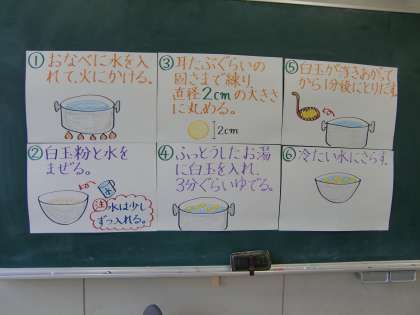 ① おなべに水を入
れて、火にかける。
② 白玉粉と水を
まぜる。
注 水は少し
ずつ入れる。
③ 耳たぶぐらいの
固さまで練り
直径2cmの大きさ
に丸める。
2cm
④ ふっとうしたお湯
に白玉を入れ、
3分ぐらいゆでる。
⑤ 白玉がうきあがって
から1分後にとりだす。
⑥ 冷たい水にさらす。